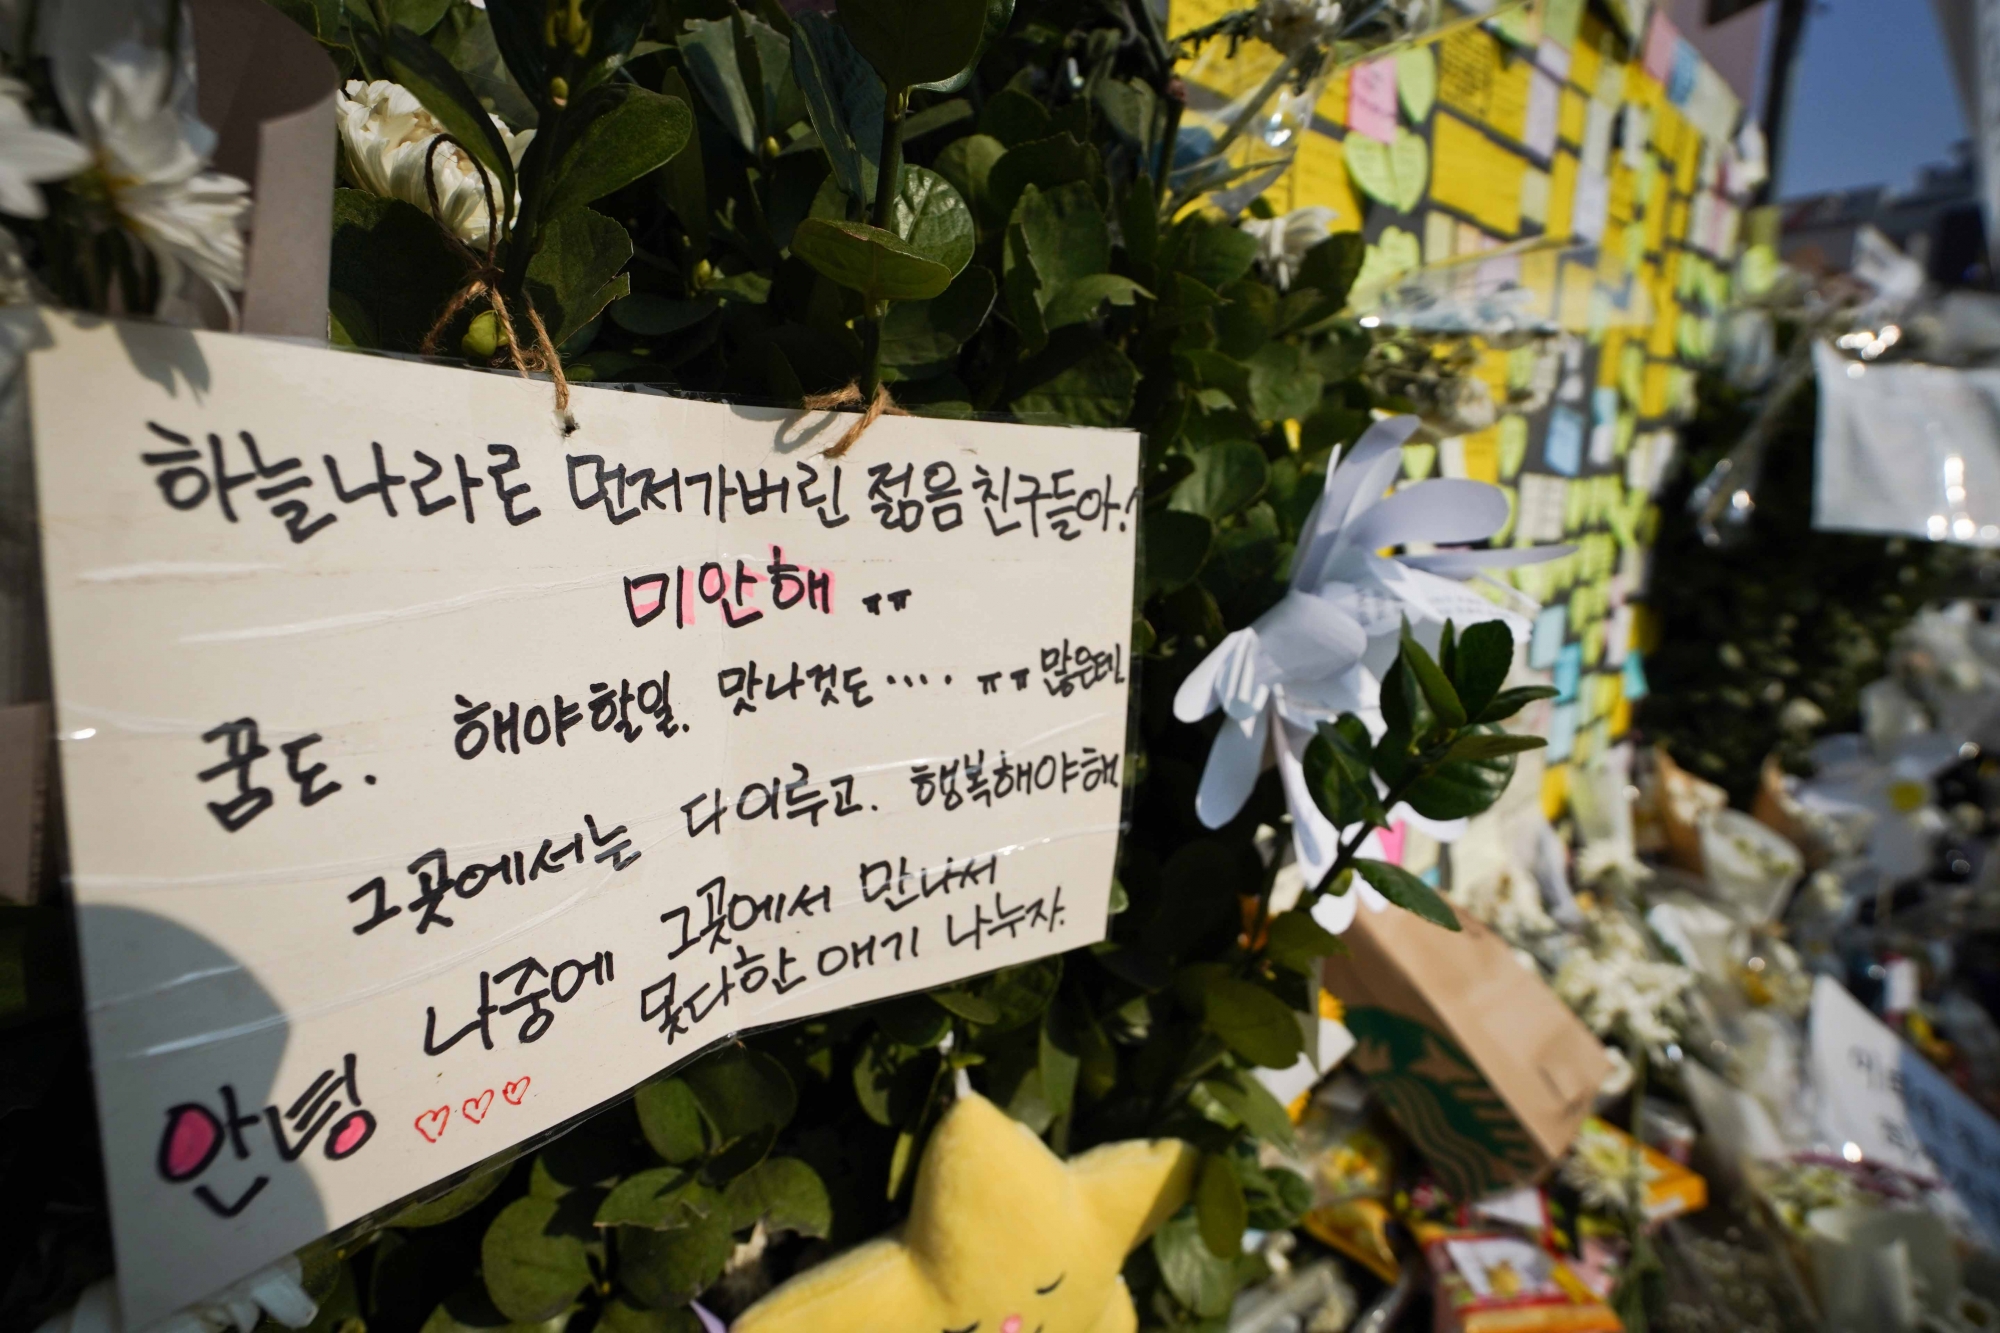 하늘나라로 먼저가버린 젊음 친구들아!
미안해 ㅠㅠ
꿈도. 해야할일. 맛나것도···· ㅠㅠ 많은데
그곳에서는 다이루고. 행복해야해
나중에 그곳에서 만나서
못다한 얘기 나누자.
안녕 ♡♡♡